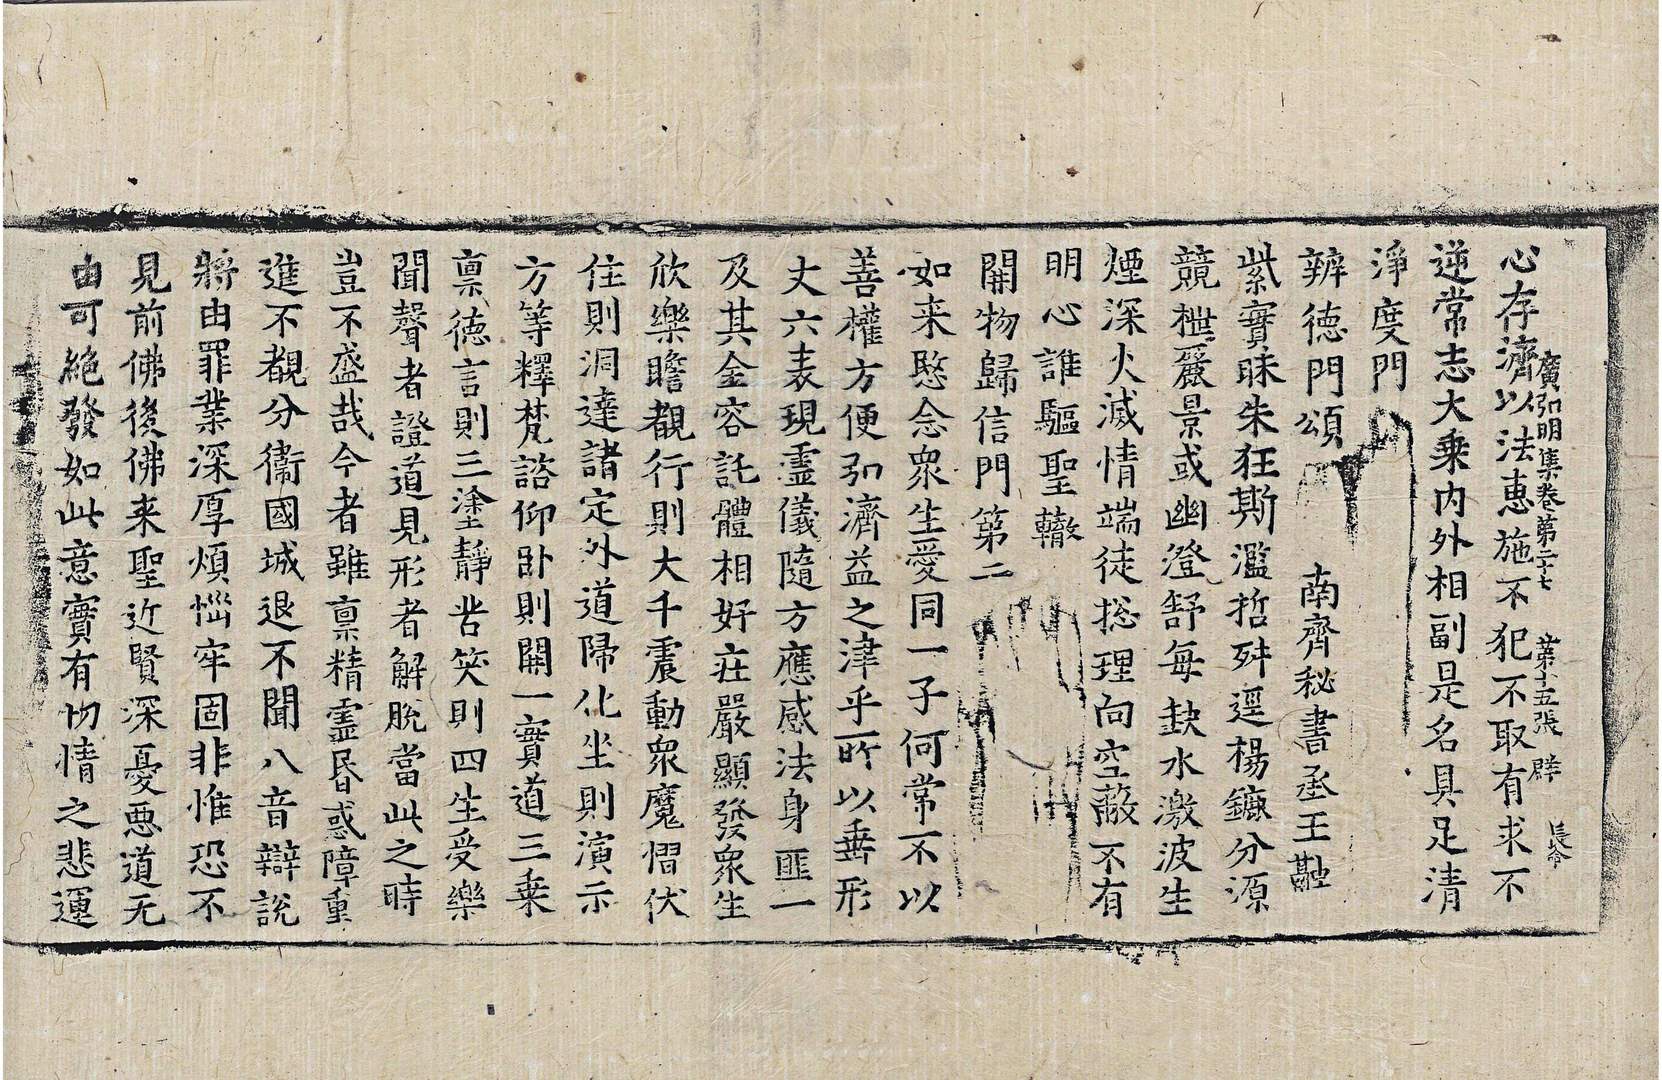 心存濟以法惠施不犯不取有求不
廣弘明集卷第二十七 第十五張 群
長命
逆常志大乗内外相副是名具足清
淨度門
辨德門頌 南齊秘書丞王融
紫實昧朱狂斯濫哲舛逕楊鑣分源
競枻麗景或幽澄舒每缺水激波生
煙深火滅情端徒揔理向空蔽不有
明心誰驅聖轍
開物歸信門第二
如来愍念衆生愛同一子何常不以
善權方便弘濟益之津乎所以垂形
丈六表現靈儀隨方應感法身匪一
及其金容託體相好莊嚴顯發衆生
欣樂瞻覩行則大千震動衆魔慴伏
住則洞達諸定外道歸化坐則演示
方等釋梵諮仰卧則開一實道三乗
禀德言則三塗靜苦笑則四生受樂
聞聲者證道見形者解脫當此之時
豈不盛哉今者雖禀精靈昏惑障重
進不覩分衞國城退不聞八音辯說
將由罪業深厚煩惱牢固非惟恐不
見前佛後佛来聖近賢深憂惡道无
由可絶發如此意實有切情之悲運